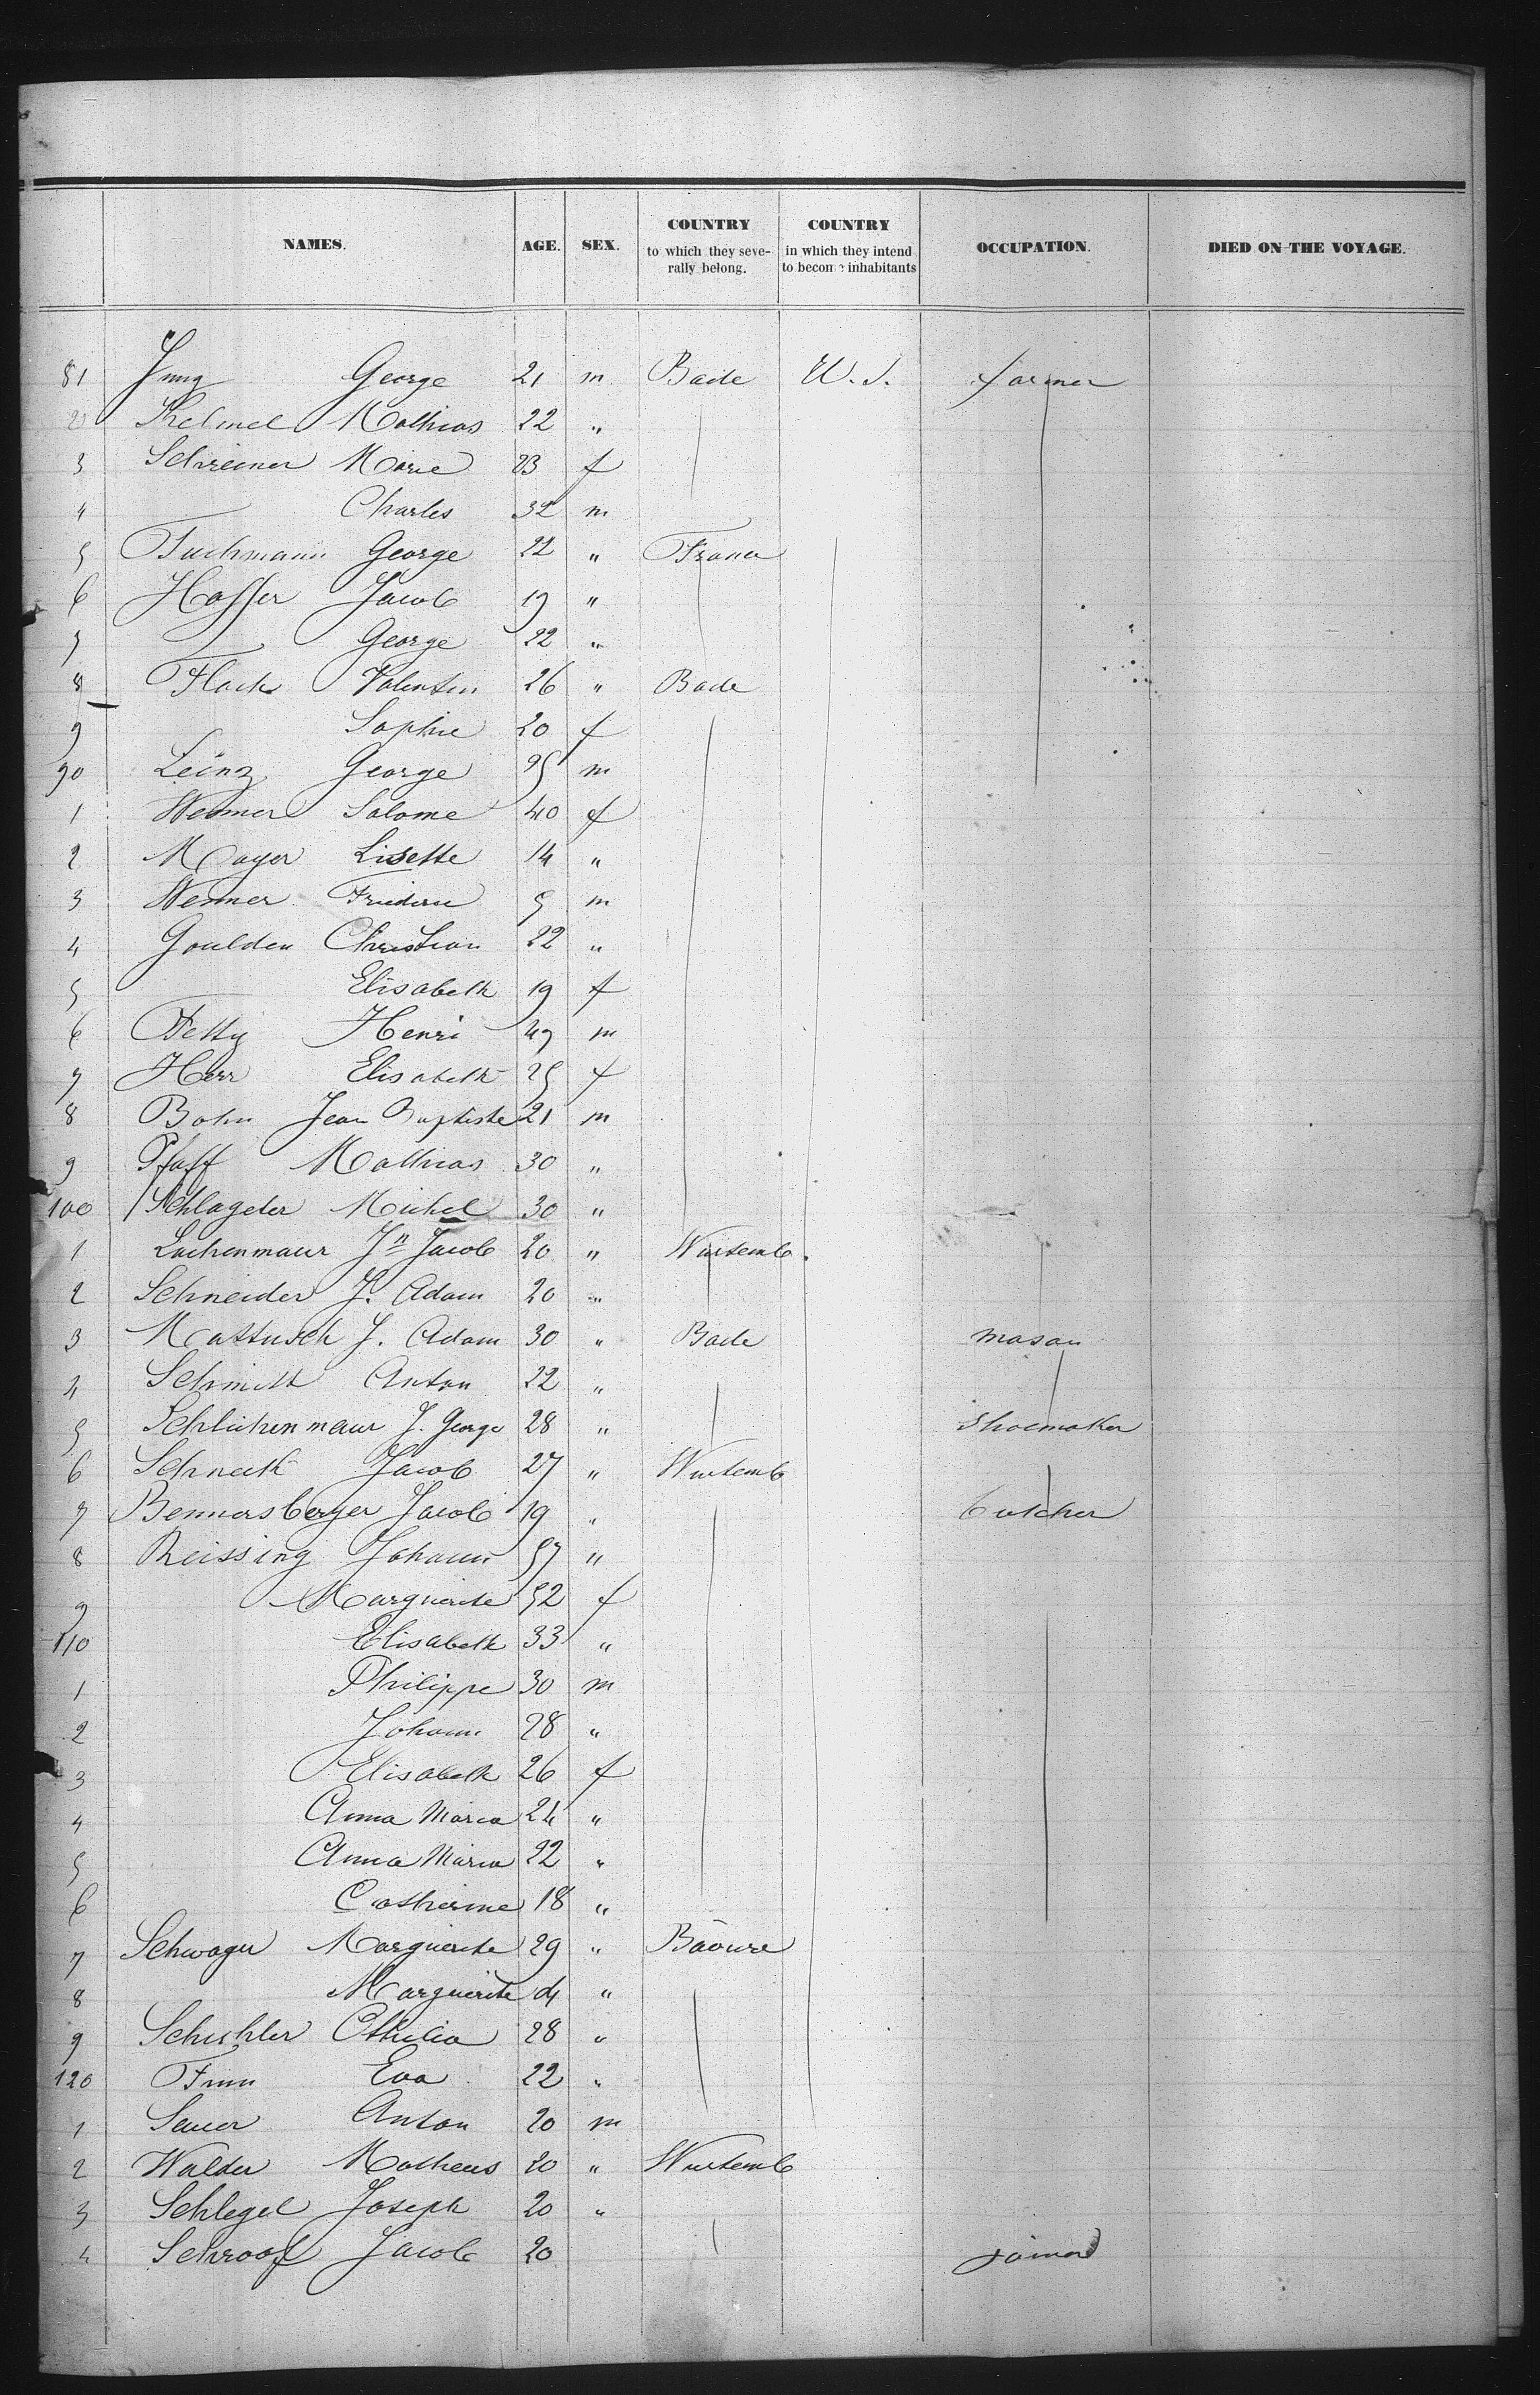 NAMES. AGE. SEX. COUNTRY to which they severally belong. COUNTRY in which they intend to become inhabitants OCCUPATION. DIED ON THE VOYAGE.
81 Jung George 21 m Bade U. S. farmer
2 Mathias 22 "
3 Schreiner Marie 23 f
4 Charles 32 m
5 Tuchmann George 22 " France
6 Hoffer Jacob 19 "
7 George 22 "
8 Flack Valentin 26 " Bade
9 Sophie 20 f
90 Leinz George 25 m
1 Wenner Salome 40 f
2 Mayer Lisette 14 "
3 Wenner 5 m
4 Goulden Christian 22 "
5 Elisabeth 19 f
6 Henri 49 m
7 Herr Elisabeth 25 f
8 Bohn Jean Baptiste 21 m
9 Pfaff Mathias 30 "
100 Schlageter Michel 30 "
1 Lachenmaur Jn Jacob 20 " Wurtemb.
2 Schneider J. Adam 20 "
3 Mattusch J. Adam 30 " Bade mason
4 Schmitt Anton 22 "
5 Schlichenmaur J. George 28 " Shoemaker
6 Jacob 27 " Wurtemb
7 Bennersberger Jacob 19 " butcher
8 Reissing Johann 57 "
9 Marguerite 52 f
110 Elisabeth 33 "
1 Philippe 30 m
2 Johann 28 "
3 Elisabeth 26 f
4 Anna Maria 24 "
5 Anna Maria 22 "
6 Catherine 18 "
7 Schwager Marguerite 29 " Baviere
8 Marguerite 4 "
9 28 "
120 Eva 22 "
1 Sauer Anton 20 m
2 Walder Matheus 20 " Wurtemb
3 Schlegel Joseph 20 "
4 Schroof Jacob 20 joiner